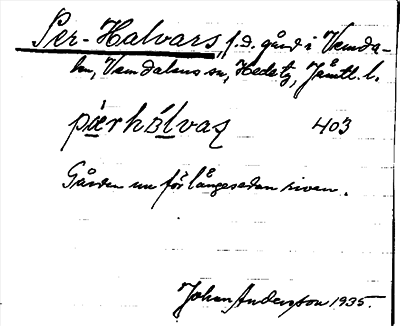 Per-Halvars, f.d. gård i Vemda-
len, Vemdalens sn, Hede tg, Jämtl. l.
pärhálvaʂ 403
Gården nu för länge sedan riven.
Johan Andersson 1935.